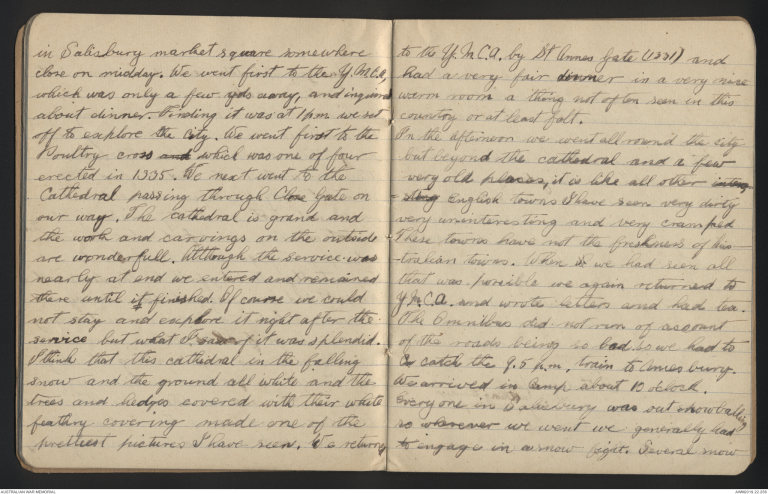 in Salisbury market square somewhere
close on midday. We went first to the Y.M.C.A,
which was only a few yds away, and inquired
about dinner. Finding it was at 1 pm we set
off to explore the city. We went first to the
Poultry cross and which was one of four
erected in 1335. We next went to the
Cathedral passing through Close Gate on
our way. The cathedral is grand and
the work and carvings on the outside
are wonderfull. Although the service was
nearly at end we entered and remained
there until it finished. Of course we could
not stay and explore it right after the
service but what I saw of it was splendid.
I think that this cathedral in the falling
snow and the ground all white and the
trees and hedges covered with their white
feathry covering made one of the
prettiest pictures I have seen. We returned
to the Y.M.C.A. by St Annes Gate (1331) and
had a very fair dinner in a very nice
warm room a thing not often seen in this
country or at least felt.
In the afternoon we went all round the city
but beyond the cathedral and a few
very old places, it is like all other
English towns I have seen very dirty
very uninteresting and very cramped
These towns have not the freshness of Aus-
tralian towns. When we had seen all
that was possible we again returned to
Y.M.C.A. and wrote letters and had tea.
The Omnibus did not run of account
of the roads being so bad so we had to
catch the 9.5 p.m. train to Amesbury.
We arrived in camp about 10 oclock.
Everyone in Salisbury was out snowballing
so wherever we went we generally had
to engage in a snow fight. Several snow
AUSTRALIAN WAR MEMORIAL